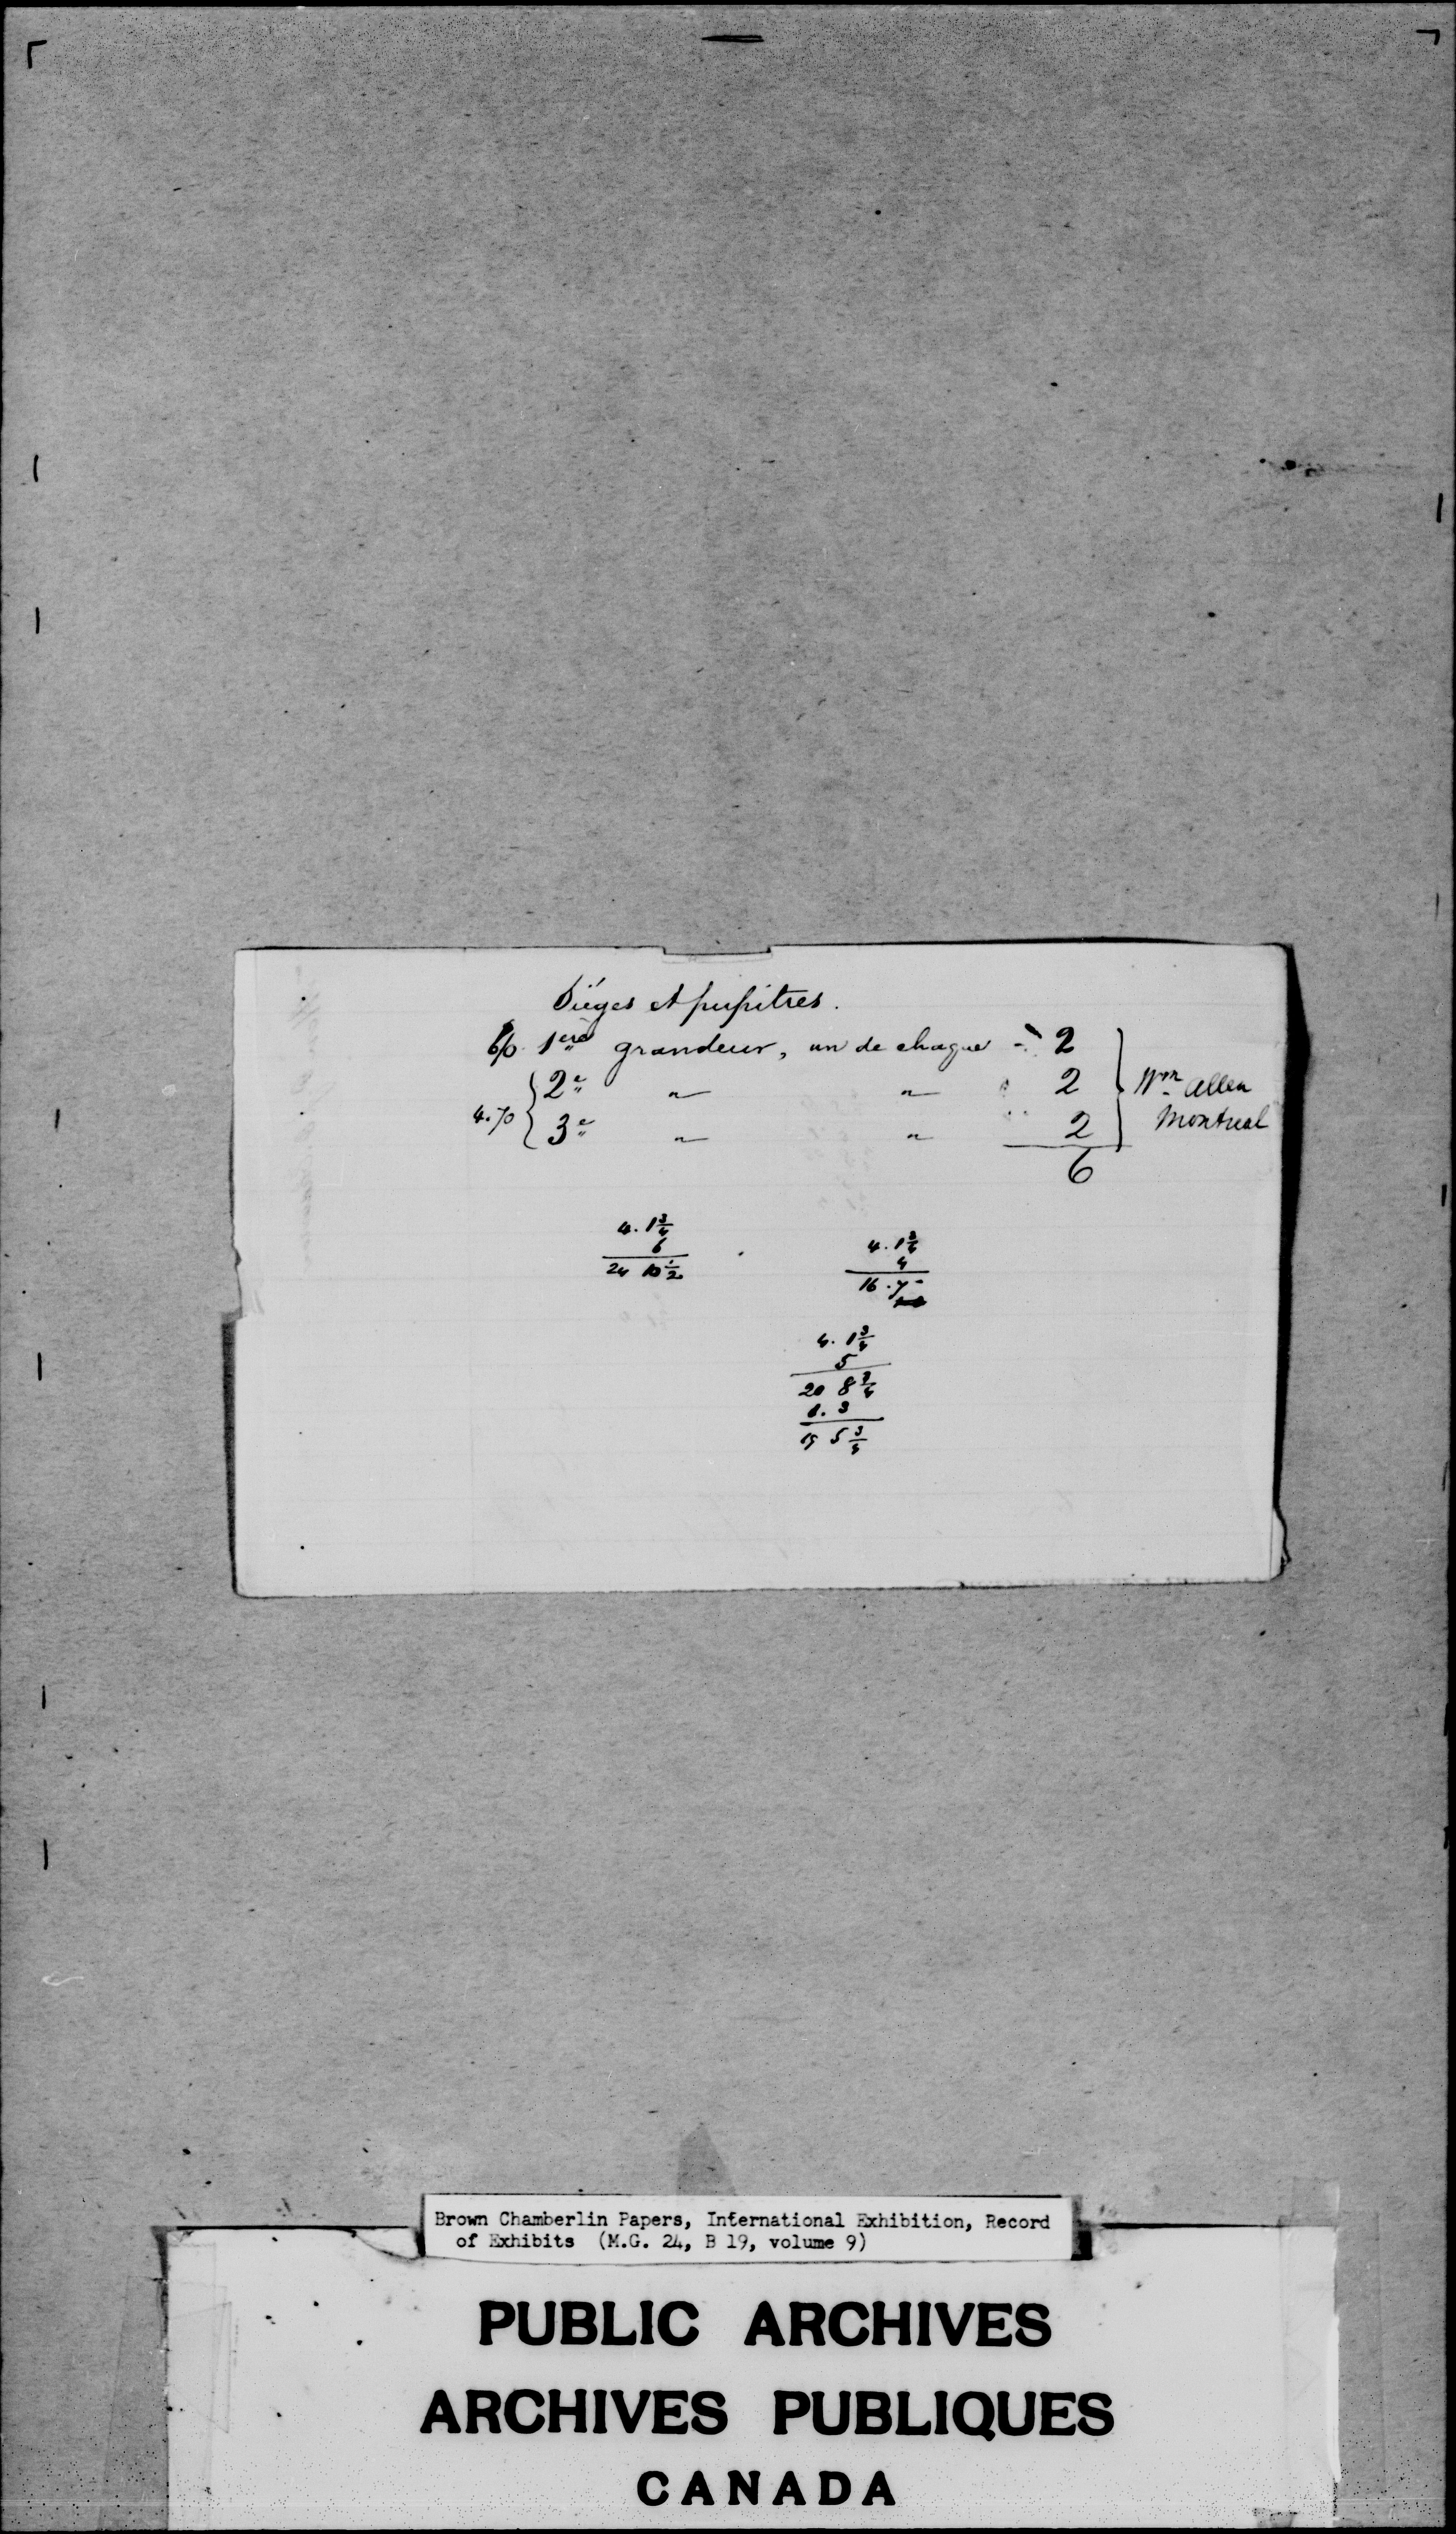 Siéges et pupitres.
6/0 1ère grandeur, un de chaque - 2
2e " " 2
4.70
3e " " 2
6
Wm Allen
Montreal
4. 1 3/4
6
24 10 1/2
4. 1 3/4
4
16. 7 -
4. 1 3/4
5
20 8 3/4
1. 3
19 5 3/4
Brown Chamberlin Papers, International Exhibition, Record
of Exhibits (M.G. 24, B 19, volume 9)
PUBLIC ARCHIVES
ARCHIVES PUBLIQUES
CANADA